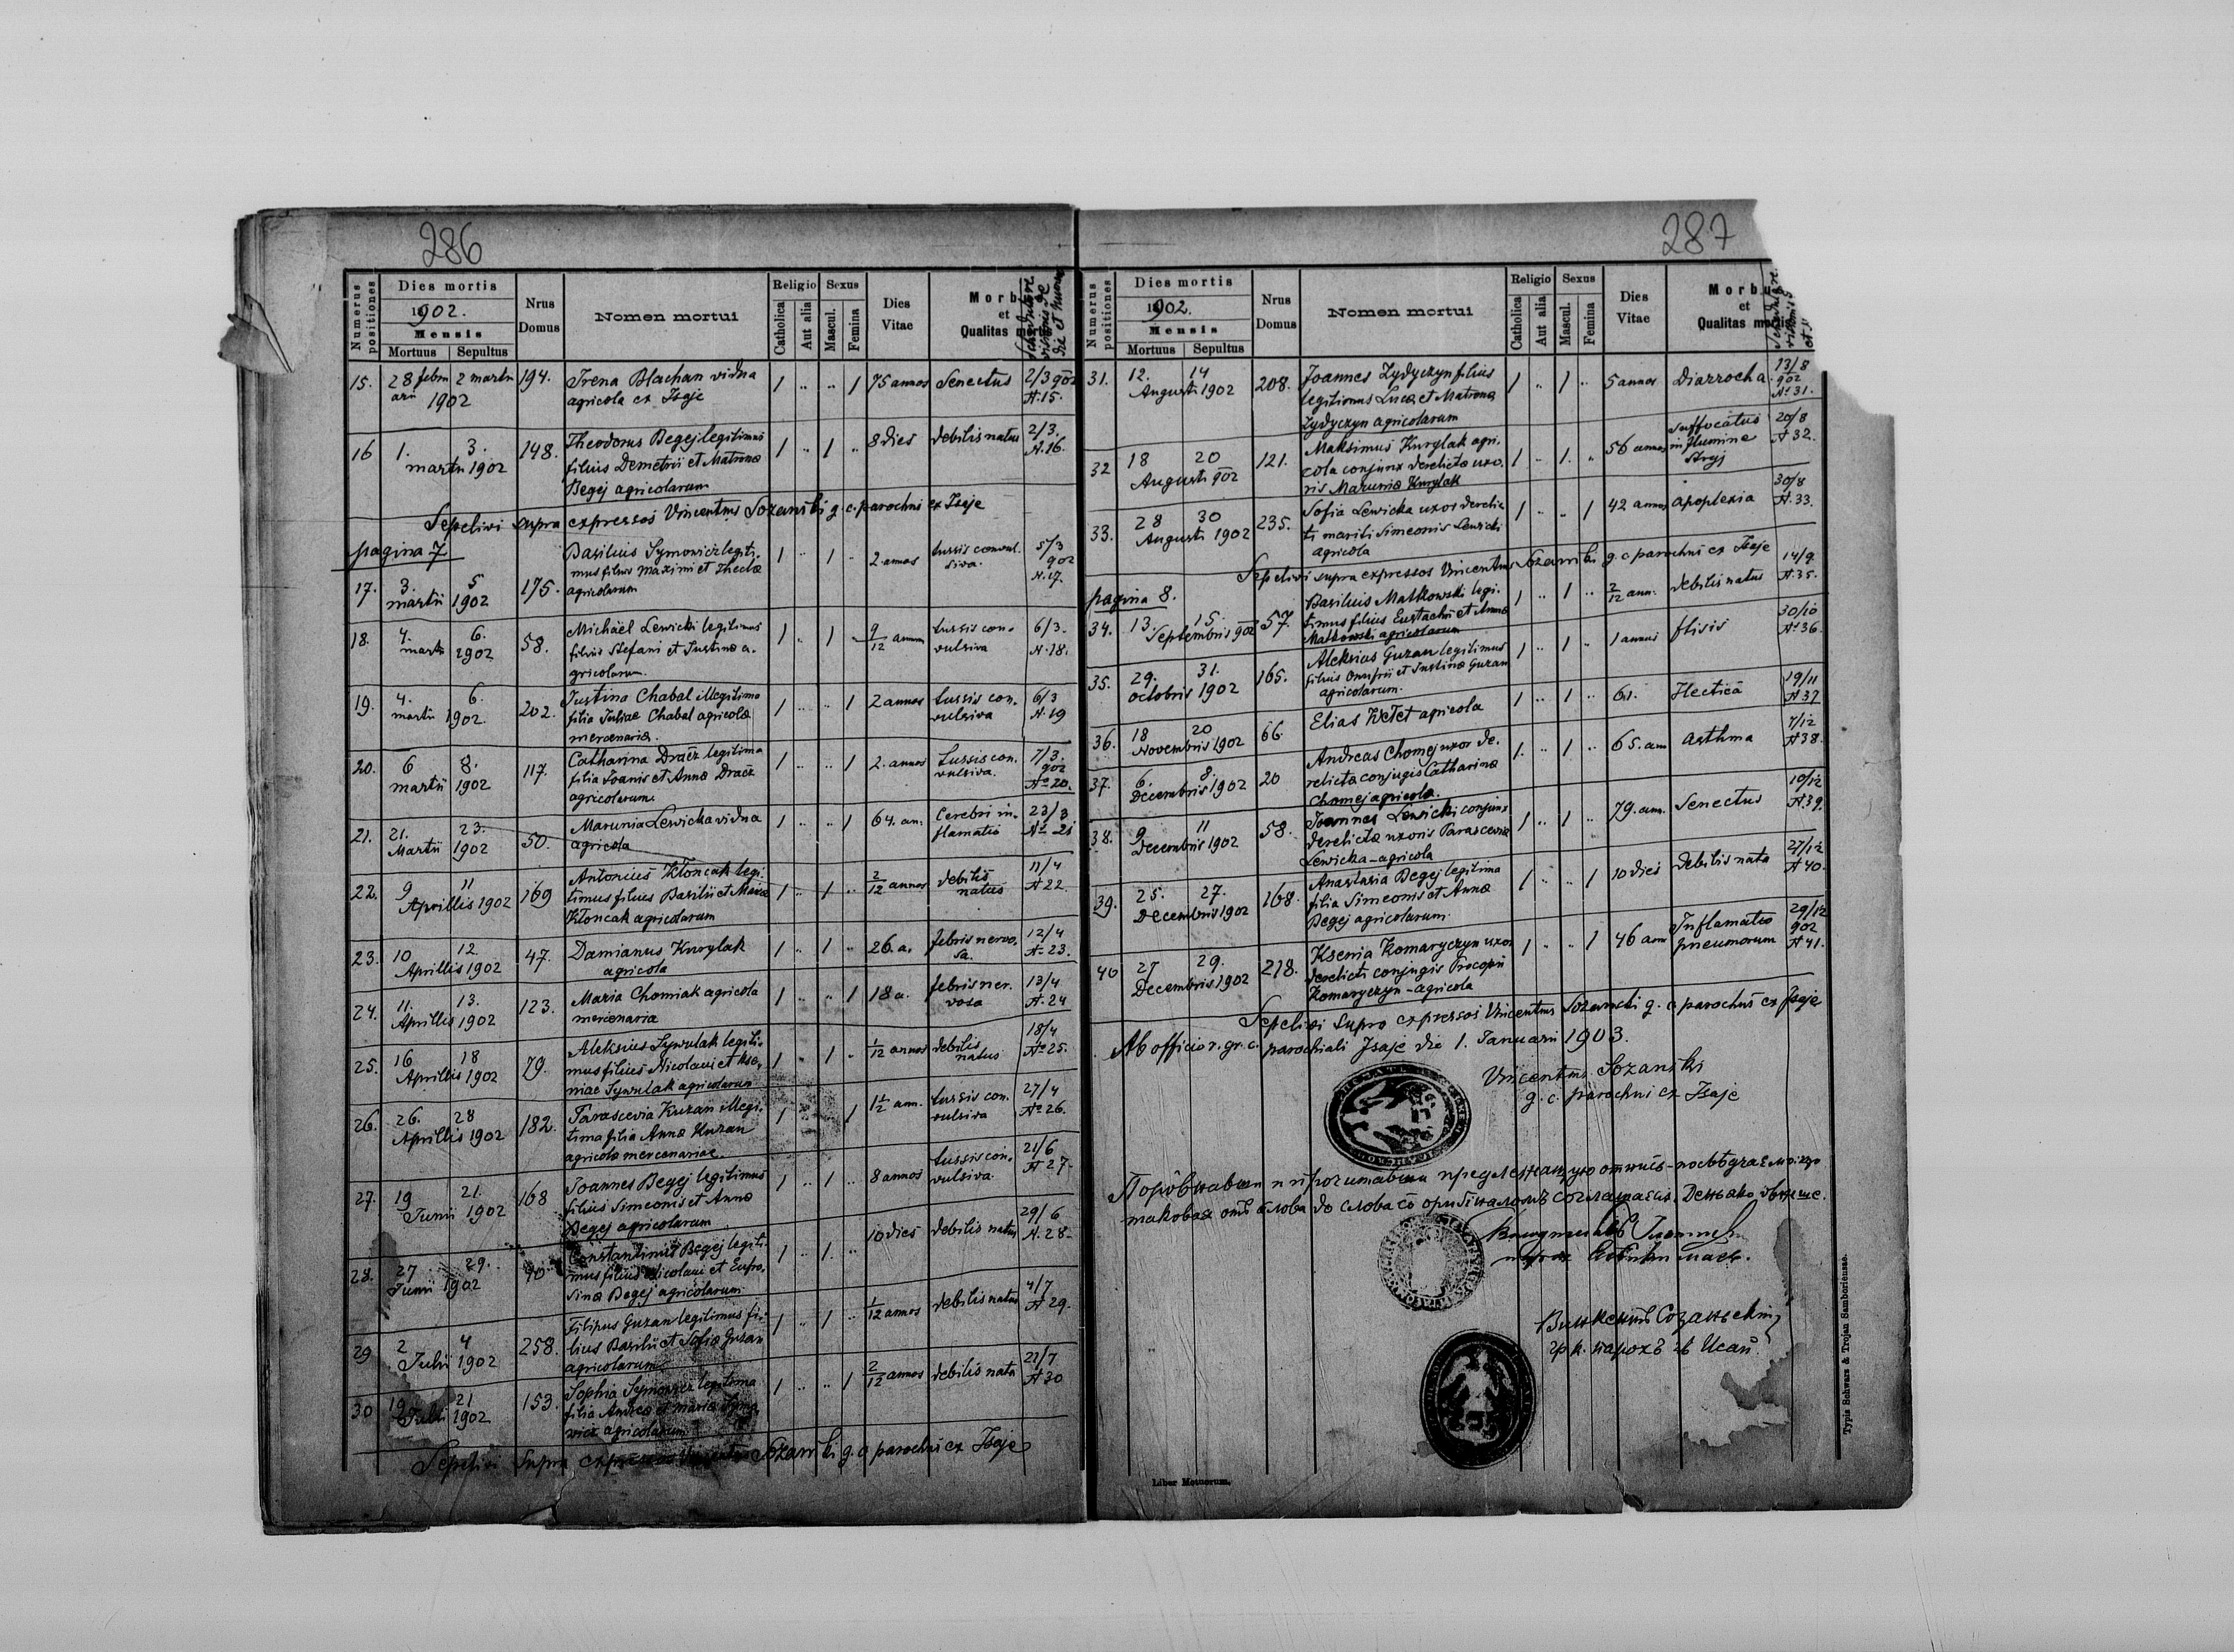 286
Numerus positiones
Dies mortis
1902.
Mensis
Mortuus Sepultus
Nrus Domus
Nomen mortui
Religio
Catholica
Aut alia
Sexus
Mascul.
Femina
Dies Vitae
Morbus et Qualitas mortis
15. 28 febru 2 martii 194. Irena Blachan vidua 1 .. .. 1 75 annos Senectus 2/3 902
arii 1902 agricola ex Isaje N. 15.
16 1. 3. 148. Theodorus Begej legitimus 1 .. 1 .. 8 dies debilis natus 2/3.
martii 1902 filius Demetrii et Matronæ N. 16.
Begej agricolarum
Sepelivi supra expressos Vincentius Sozański g. c. parochus ex Isaje
pagina 7
17. 3. 5 175. Basilius Symowicz legiti- 1 .. 1 .. 2 annos tussis convul- 5/3
martii 1902 mus filius Maximi et Theclæ siva. 902
agricolarum N. 17.
18. 4. 6. 58. Michaël Lewicki legitimus 1 .. 1 .. 9/12 annum tussis con- 6/3.
martii 1902 filius Stefani et Justinæ a- vulsiva N. 18.
gricolarum.
19. 4. 6. 202. Justina Chabal illegitima 1 .. .. 1 2 annos tussis con- 6/3
martii 1902. filia Juliae Chabal agricolæ vulsiva N. 19
mercenariæ.
20. 6 8. 117. Catharina Dracz legitima 1 .. .. 1 2. annos tussis con- 7/3.
martii 1902 filia Joanis et Annæ Dracz vulsiva. 902
agricolarum. No 20.
21. 21. 23. 50. Marunia Lewicka vidua 1 .. .. 1 64. an. Cerebri in- 23/3
Martii 1902 agricola flamatio No 21
22. 9 11 169 Antonius Kłoncak legi- 1 .. 1 .. 2/12 annos debilis 11/4
Aprillis 1902 timus filius Basilii et Mariæ natus N 22.
Kłoncak agricolarum
23. 10 12. 47. Damianus Kurylak 1 .. 1 .. 26. a. febris nervo- 12/4
Aprillis 1902 agricola sa. N. 23.
24. 11. 13. 123. Maria Chomiak agricola 1 .. .. 1 18 a. febris ner- 13/4
Aprillis 1902 mercenaria vosa N. 24
25. 16 18 79. Aleksius Sywulak legiti- 1 .. 1 .. 1/12 annos debilis 18/4
Aprillis 1902 mus filius Nicolaui et Kse- natus No 25.
niae Sywulak agricolarum
26. 26. 28 182. Parascevia Kuzan illegi- 1 .. .. 1 1 1/2 ann. tussis con- 27/4
Aprillis 1902 tima filia Annæ Kuzan vulsiva No 26.
agricolæ mercenariae.
27. 19 21. 168 Joannes Begej legitimus 1 .. 1 .. 8 annos tussis con- 21/6
Junii 1902 filius Simeonis et Annæ vulsiva. N 27.
Begej agricolarum
28. 27 29. 40 Constantinus Begej legiti- 1 .. 1. .. 10 dies debilis natus 29/6
Junii 1902 mus filius Nicolaui et Eufro- N. 28.
sinæ Begej agricolarum
29 2 4 258. Filipus Guzan legitimus fi- 1 .. 1 .. 1/12 annos debilis natus 4/7
Julii 1902 lius Basilii et Sofiæ Guzan N 29.
agricolarum
30 19 21 153. Sophia Symowicz legitima 1 .. .. 1 2/12 annos debilis nata 21/7
Julii 1902 filia Andreæ et Mariæ Symo- N 30
wicz agricolarum
Sepelivi supra expressos Vincentius Sozański g. c. parochus ex Isaje
287
Numerus positiones
Dies mortis
1902.
Mensis
Mortuus Sepultus
Nrus Domus
Nomen mortui
Religio
Catholica
Aut alia
Sexus
Mascul.
Femina
Dies Vitae
Morbus et Qualitas mortis
31. 12. 14 208. Joannes Zydyczyn filius 1 .. 1 .. 5 annos Diarrocha 13/8
Augusti 1902 legitimus Lucæ et Matronæ 902
Zydyczyn agricolarum No 31.
32 18 20 121. Maksimus Kurylak agri- 1 .. 1. .. 56 annos suffocatus 20/8
Augusti 902 cola conjunx derelictæ uxo- in flumine N 32.
ris Maruniæ Kurylak Stryj
33. 28 30 235. Sofia Lewicka uxor derelic- 1 .. .. 1 42 annos apoplexia 30/8
Augusti 1902 ti mariti Simeonis Lewicki N. 33.
agricola
Sepelivi supra expressos Vincentius Sozański g. c. parochus ex Isaje
pagina 8.
34. 13. 15. 57. Basilius Matkowski legi- 1 .. 1 .. 2/12 ann. debilis natus 14/9
Septembris 902 timus filius Eustachii et Annæ N. 35.
Matkowski agricolarum
35. 29. 31. 165. Aleksius Guzan legitimus 1 .. 1 .. 1 annus ftisis 30/10
octobris 1902 filius Onufrii et Justinæ Guzan No 36.
agricolarum.
36. 18 20 66. Elias agricola 1 .. 1 .. 61. Hectica 19/11
Novembris 1902 N 37
37. 6. 8. 20 Andreas Chomej uxor de- 1. .. 1 .. 65. ann asthma 7/12
Decembris 1902 relictæ conjugis Catharinæ N 38.
Chomej agricola.
38. 9 11 58. Joannes Lewicki conjunx 1 .. 1 .. 79. ann. Senectus 10/12
Decembris 1902 derelictæ uxoris Parasceviæ N. 39.
Lewicka - agricola
39. 25. 27. 168. Anastasia Begej legitima 1 .. .. 1 10 dies debilis nata 27/12
Decembris 1902 filia Simeonis et Annæ N 40.
Begej agricolarum.
40 27 29. 218. Ksenia Komaryczyn uxor 1 .. .. 1 46 ann Inflamatio 29/12
Decembris 1902 derelicti conjugis Procopii pneumorum 902
Komaryczyn - agricola N 41.
Sepelivi supra expressos Vincentius Sozański g. c. parochus ex Isaje
Ab officio r. gr. c. parochiali Isaje die 1. Januarii 1903.
Vincentius Sozański
g. c. parochus ex Isaje
Викентій Созаньскій
гр. к. парохъ въ Исаи.
Liber Motuorum.
Typis Schwarz & Trojan Samboriensae.